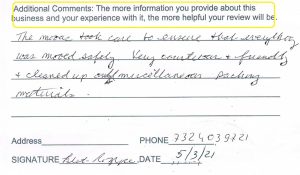 Additional Comments: The more information you provide about this
business and your experience with it, the more helpful your review will be.
The move took care to ensure that everything
was moved safely Very courteous & friendly
& cleaned up miscellaneous packing
materials.
Address PHONE 7324039721
SIGNATURE DATE 5/3/21